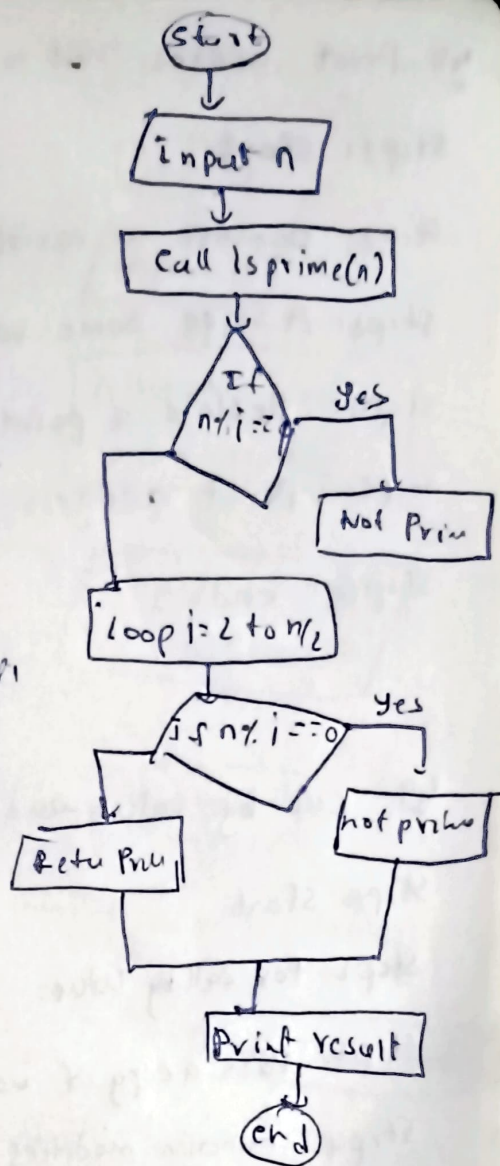 Start
input n
Call Isprime(n)
If
n%i=
Yes
Not Prim
Loop i=2 to n/2
Is n% i ==0
Yes
Retu Prim
not prime
Print result
end